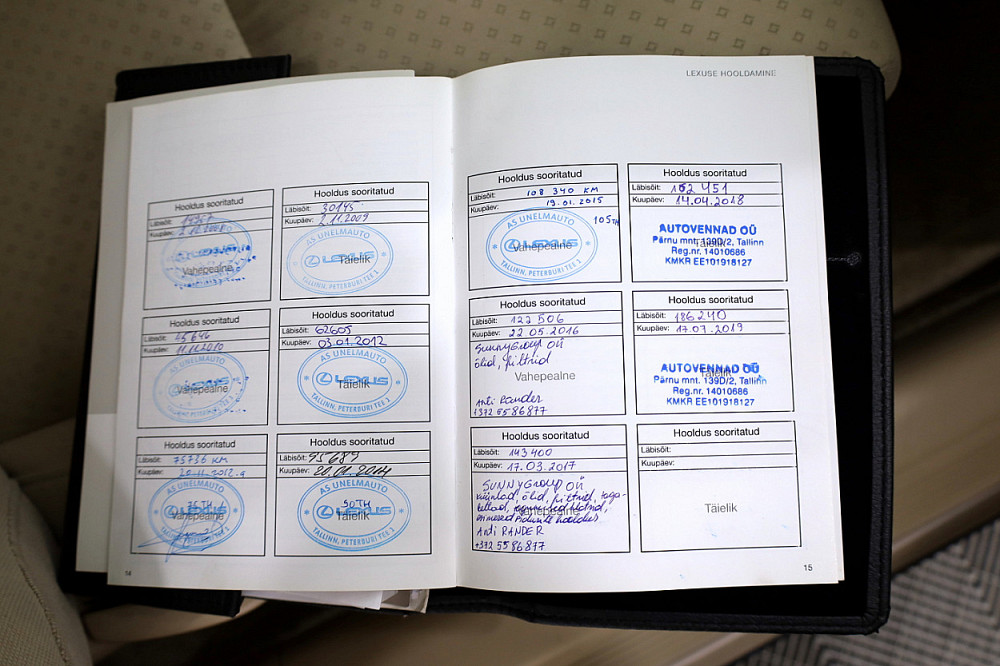 LEXUSE HOOLDAMINE
Hooldus sooritatud
Läbisõit:
Kuupäev: 2.12.2008
Vahepealne
Hooldus sooritatud
Läbisõit: 30145
Kuupäev: 2.11.2009
AS UNELMAUTO
LEXUS
Täielik
TALLINN, PETERBURI TEE 2
Hooldus sooritatud
Läbisõit: 45646
Kuupäev: 11.11.2010
AS UNELMAUTO
LEXUS
Vahepealne
TALLINN, PETERBURI TEE 2
Hooldus sooritatud
Läbisõit: 62605
Kuupäev: 03.01.2012
AS UNELMAUTO
LEXUS
Täielik
TALLINN, PETERBURI TEE 2
Hooldus sooritatud
Läbisõit: 75736 KM
Kuupäev: 20.11.2012.a
AS UNELMAUTO
75TH
LEXUS
Vahepealne
TALLINN, PETERBURI TEE 2
Hooldus sooritatud
Läbisõit: 95689
Kuupäev: 20.01.2014
AS UNELMAUTO
90TH
LEXUS
Täielik
TALLINN, PETERBURI TEE 2
14
Hooldus sooritatud
Läbisõit: 108 340 KM
Kuupäev: 19.01.2015
105TH
AS UNELMAUTO
LEXUS
Vahepealne
TALLINN, PETERBURI TEE 2
Hooldus sooritatud
Läbisõit: 162 451
Kuupäev: 14.04.2018
AUTOVENNAD OÜ
Pärnu mnt. 139D/2, Tallinn
Täielik
Reg.nr. 14010686
KMKR EE101918127
Hooldus sooritatud
Läbisõit: 122 506
Kuupäev: 22.05.2016
SunnyGroup OÜ
õlid, filtrid
Vahepealne
Anti Rander
+372 5586877
Hooldus sooritatud
Läbisõit: 186240
Kuupäev: 17.07.2019
AUTOVENNAD OÜ
Täielik
Pärnu mnt. 139D/2, Tallinn
Reg.nr. 14010686
KMKR EE101918127
Hooldus sooritatud
Läbisõit: 143400
Kuupäev: 17.03.2017
SUNNYGroup OÜ
küünlad, õlid, filtrid, taga-
Vahepealne
Anti RANDER
+372 5586877
Hooldus sooritatud
Läbisõit:
Kuupäev:
Täielik
15